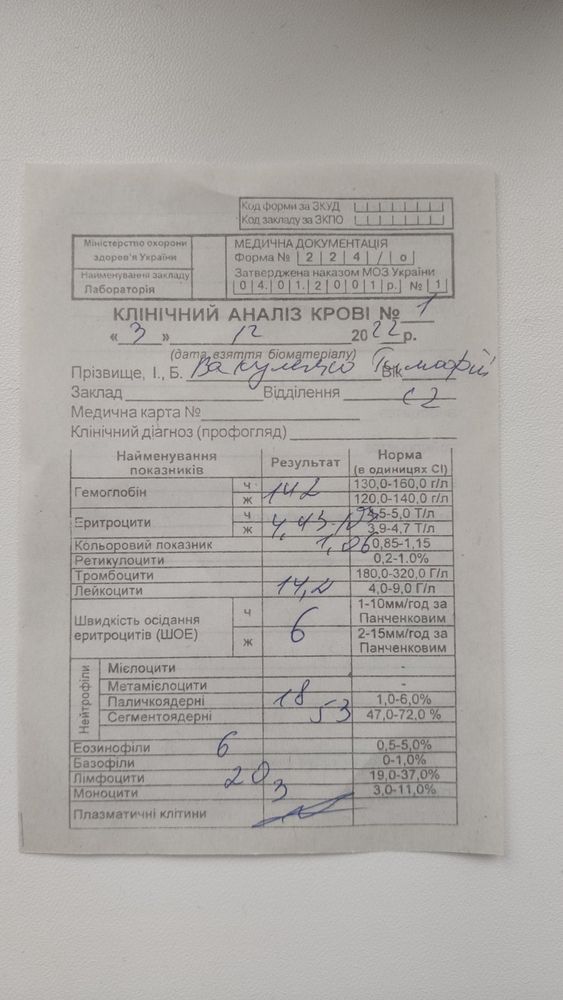 Код форми за ЗКУД
Код закладу за ЗКПО
Міністерство охорони здоров'я України
Найменування закладу
Лабораторія
МЕДИЧНА ДОКУМЕНТАЦІЯ
Форма № 2 2 4 / о
Затверджена наказом МОЗ України
0 4. 0 1. 2 0 0 1 р. № 1
КЛІНІЧНИЙ АНАЛІЗ КРОВІ № 1
« 3 » 12 2022 р.
(дата взяття біоматеріалу)
Прізвище, І., Б. Вакуленко Тимофій Вік
Заклад Відділення
Медична карта №
Клінічний діагноз (профогляд)
Найменування показників Результат Норма (в одиницях СІ)
Гемоглобін ч 142 130,0-160,0 г/л
ж 120,0-140,0 г/л
Еритроцити ч 4,43 4,5-5,0 Т/л
ж 3,9-4,7 Т/л
Кольоровий показник 0,85-1,15
Ретикулоцити 0,2-1.0%
Тромбоцити 180,0-320,0 Г/л
Лейкоцити 4,0-9,0 Г/л
Швидкість осідання еритроцитів (ШОЕ) ч 6 1-10мм/год за Панченковим
ж 2-15мм/год за Панченковим
Нейтрофіли
Мієлоцити -
Метамієлоцити -
Паличкоядерні 18 1,0-6,0%
Сегментоядерні 53 47,0-72,0 %
Еозинофіли 6 0,5-5,0%
Базофіли 0-1,0%
Лімфоцити 20 19,0-37,0%
Моноцити 3 3,0-11,0%
Плазматичні клітини